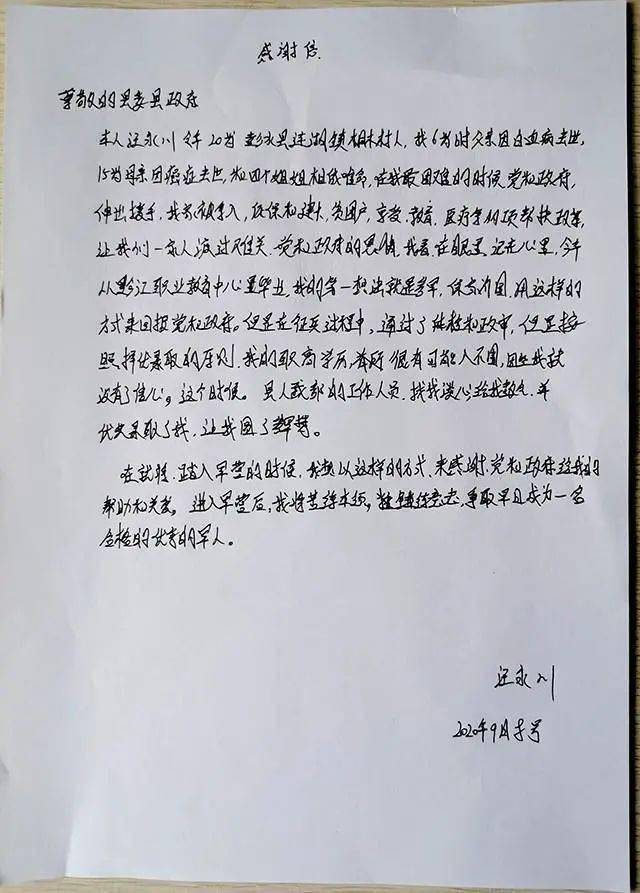 感谢信
尊敬的县委县政府
本人汪永川 今年20岁 彭水县连湖镇桐木村人,我6岁时父亲因白血病去世,
15岁母亲因癌症去世,和四个姐姐相依为命,在我最困难的时候,党和政府,
伸出援手,我家被享入,低保和建大,贫困户,享受,教育,医疗等各项帮扶政策,
让我们一家人渡过了难关。党和政府的恩情,我看,在眼里,记在心里,今年
从黔江职业教育中心里毕业,我的第一想法就是参军,保家为国,用这样的
方式来回报党和政府。但是在征兵过程中,通过了体检和政审,但是按
照择优录取的原则,我的职高学历,有可能入不围,因此我就
没有了信心。这个时候。县人武部的工作人员,找我谈心给我鼓气,并
优先录取了我,让我圆了梦。
在就要踏入军营的时候,我想以这样的方式,来感谢,党和政府给我的
帮助和关爱,进入军营后,我将苦练本领,锤炼意志,争取早日成为一名
合格的优秀的军人。
汪永川
2020年9月